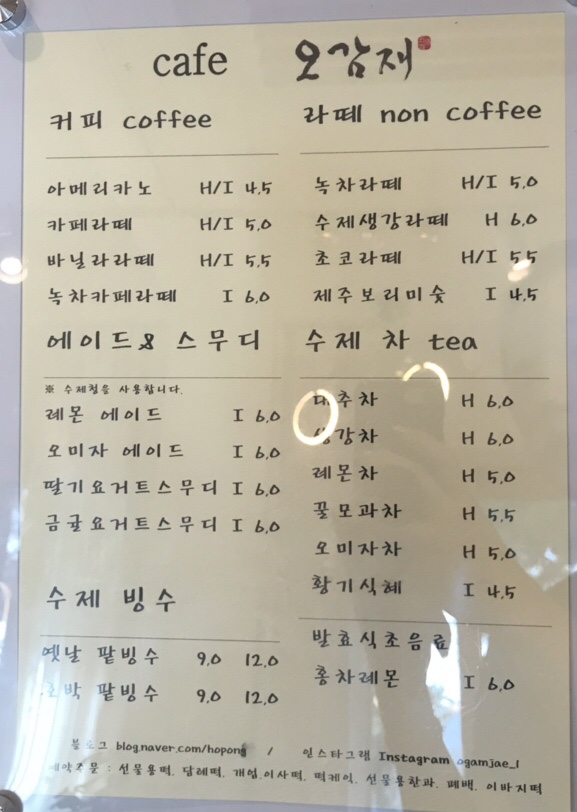 cafe 오감재
커피 coffee
아메리카노 H/I 4.5
카페라떼 H/I 5.0
바닐라라떼 H/I 5.5
녹차카페라떼 I 6.0
에이드 & 스무디
※ 수제청을 사용합니다.
레몬 에이드 I 6.0
오미자 에이드 I 6.0
딸기요거트스무디 I 6.0
금귤요거트스무디 I 6.0
수제 빙수
옛날 팥빙수 9.0 12.0
호박 팥빙수 9.0 12.0
라떼 non coffee
녹차라떼 H/I 5.0
수제생강라떼 H 6.0
초코라떼 H/I 5.5
제주보리미숫 I 4.5
수제 차 tea
대추차 H 6.0
생강차 H 6.0
레몬차 H 5.0
꿀모과차 H 5.5
오미자차 H 5.0
황기식혜 I 4.5
발효식초음료
홍차레몬 I 6.0
블로그 blog.naver.com/hopong / 인스타그램 Instagram ogamjae_1
예약주문 : 선물용떡. 답례떡. 개업.이사떡. 떡케익. 선물용한과. 폐백. 이바지떡